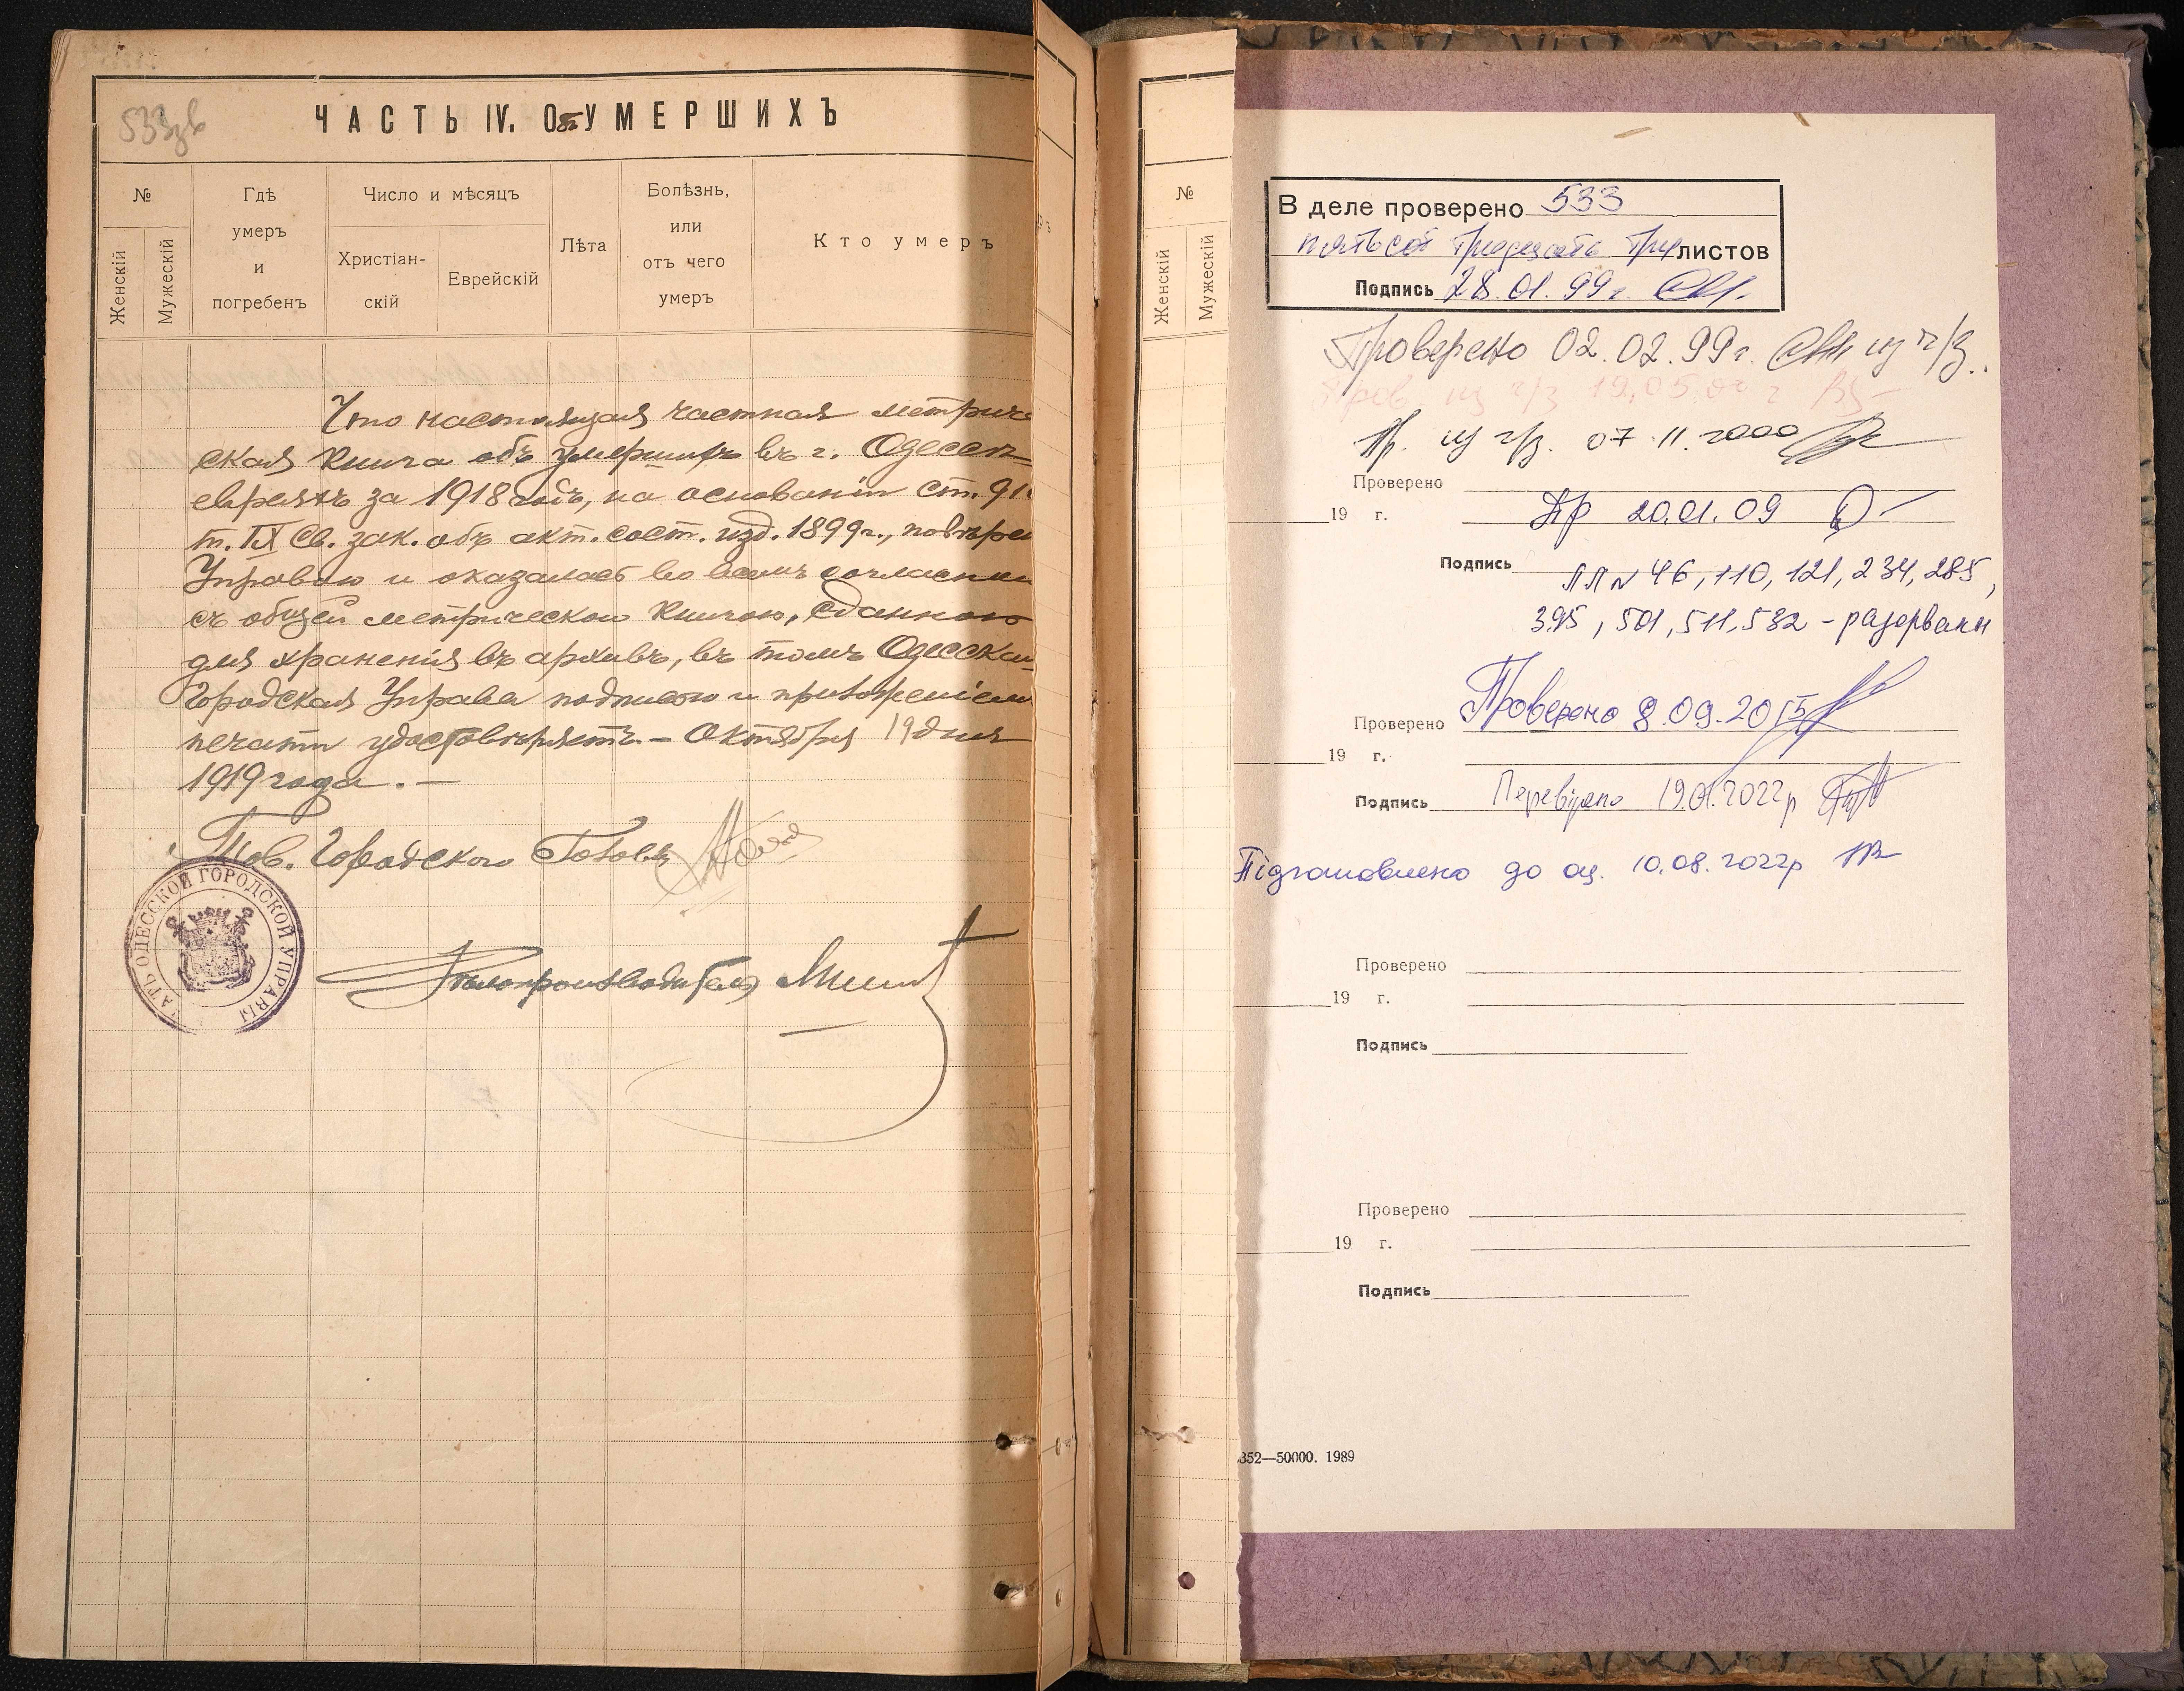 533зв
ЧАСТЬ IV. Объ УМЕРШИХЪ
№
Женскій
Мужескій
Гдѣ
умеръ
и
погребенъ
Число и мѣсяцъ
Христіан-
скій
Еврейскій
Лѣта
Болѣзнь,
или
отъ чего
умеръ
Кто умеръ
Что настоящая частная метриче
ская книга объ умершихъ въ г. Одессѣ
евреяхъ за 1918 годъ, на основаніи ст. 91
т. IX Св. зак. объ акт. сост. изд. 1899г., повѣре
Управою и оказалась во всемъ согласною
съ общей метрическою книгою, сданною
для храненія въ архивъ, въ томъ Одесская
Городская Управа подписью и приложеніемъ
печати удостовѣряетъ. – Октября 19 дня
1919 года. –
Тов. Городского Головы
Дѣлопроизводитель
АТЬ ОДЕССКОЙ ГОРОДСКОЙ УПРАВЫ
№
Женскій
Мужескій
В деле проверено 533
пятьсот тридцать три листов
Подпись 28.01.99г.
Проверено 02.02.99г. из ч/з.
Пров. из ч/з 19.05.00 г
Пр. из ч/з. 07.11.2000
Проверено
19 г.
Пр 20.01.09
Подпись
ЛЛ № 46, 110, 121, 234, 285,
395, 501, 511, 532 - разорваны
Проверено Проверено 8.09.2015
19 г.
Подпись Перевірено 19.01.2022р
Підготовлено до оц. 10.08.2022р
Проверено
19 г.
Подпись
Проверено
19 г.
Подпись
352—50000. 1989